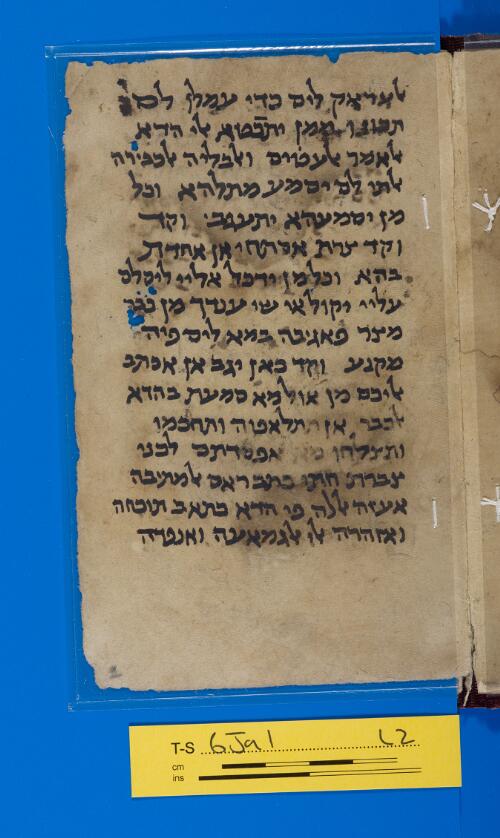 לעראק ליס כדי עמלו
תכונו ממן יתבטא לי הדא
לאמר לעטים ולבליה לכבירה
לתי לם יסמע מתלהא וכל
מן יסמעהא יתעגב וקד
וקד צרת אסתחי אן אחדת
בהא וכלמן ידכל אליי ליסלם
עליי יקול אי שי ענדך מן כבר
מצר פאגיבה במא ליס פיה
מקנע וקד כאן יגב אן אכתב
ליכם מן אול מא סמעת בהדא
לכבר אן תתלאפוה ותחכמו
ותצלחו אפסדתם לבני
צברת חתי כתב ראס למתיבה
אעזה אללה פי הדא כתאב תוכחה
ואזהרה לי לגמאעה ואנפדה
T-S 6Ja1 L2
cm
ins